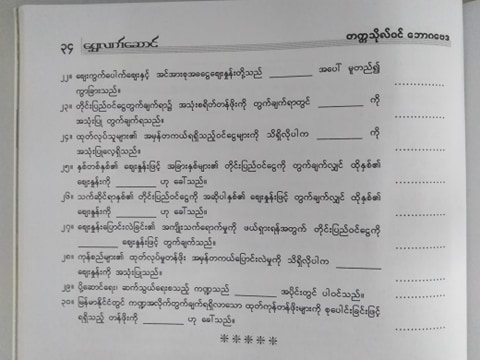 ၃၄ ရွှေလက်ဆောင် တက္ကသိုလ်ဝင် ဘောဂဗေဒ
၂၂။ ဈေးကွက်ပေါက်ဈေးနှင့် အင်အားစုအခြေဈေးနှုန်းတို့သည် __________ အပေါ် မူတည်၍
ကွာခြားသည်။
၂၃။ တိုင်းပြည်ဝင်ငွေတွက်ချက်ရာ၌ အသုံးစရိတ်တန်ဖိုးကို တွက်ချက်ရာတွင် __________ ကို
အသုံးပြု တွက်ချက်ရသည်။
၂၄။ ထုတ်လုပ်သူများ၏ အမှန်တကယ်ရရှိသည့်ဝင်ငွေများကို သိရှိလိုပါက __________ ကို
အသုံးပြုလေ့ရှိသည်။
၂၅။ နှစ်တစ်နှစ်၏ ဈေးနှုန်းဖြင့် အခြားနှစ်များ၏ တိုင်းပြည်ဝင်ငွေကို တွက်ချက်လျှင် ထိုနှစ်၏
ဈေးနှုန်းကို __________ ဟု ခေါ်သည်။
၂၆။ သက်ဆိုင်ရာနှစ်၏ တိုင်းပြည်ဝင်ငွေကို အဆိုပါနှစ်၏ ဈေးနှုန်းဖြင့် တွက်ချက်လျှင် ထိုနှစ်၏
ဈေးနှုန်းကို __________ ဟု ခေါ်သည်။
၂၇။ ဈေးနှုန်းပြောင်းလဲခြင်း၏ အကျိုးသက်ရောက်မှုကို ဖယ်ရှားရန်အတွက် တိုင်းပြည်ဝင်ငွေကို
__________ ဈေးနှုန်းဖြင့် တွက်ချက်သည်။
၂၈။ ကုန်စည်များ၏ ထုတ်လုပ်မှုတန်ဖိုး အမှန်တကယ်ပြောင်းလဲမှုကို သိရှိလိုပါက __________
ဈေးနှုန်းကို အသုံးပြုသည်။
၂၉။ ပို့ဆောင်ရေး၊ ဆက်သွယ်ရေးစသည့် ကဏ္ဍသည် __________ အပိုင်းတွင် ပါဝင်သည်။
၃၀။ မြန်မာနိုင်ငံတွင် ကဏ္ဍအလိုက်တွက်ချက်ရရှိလာသော ထုတ်ကုန်တန်ဖိုးများကို စုပေါင်းခြင်းဖြင့်
ရရှိသည့် တန်ဖိုးကို __________ ဟု ခေါ်သည်။